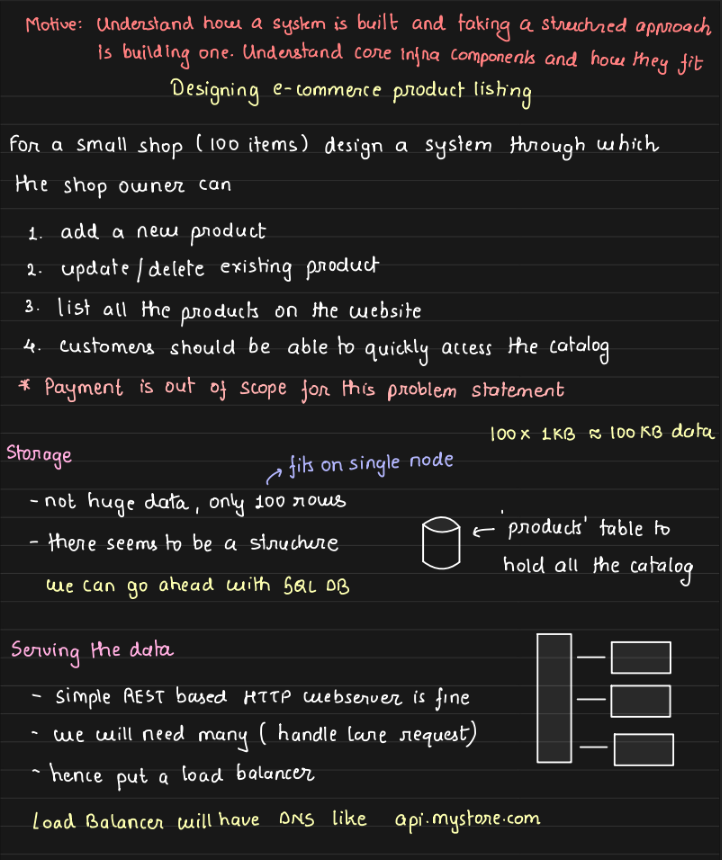 Motive: Understand how a system is built and taking a structured approach
is building one. Understand core infra components and how they fit
Designing e-commerce product listing
For a small shop (100 items) design a system through which
the shop owner can
1. add a new product
2. update/delete existing product
3. list all the products on the website
4. customers should be able to quickly access the catalog
* Payment is out of scope for this problem statement
100 x 1KB ≈ 100 KB data
Storage
fits on single node
- not huge data, only 100 rows
- there seems to be a structure
'products' table to
hold all the catalog
we can go ahead with SQL DB
Serving the data
- simple REST based HTTP webserver is fine
- we will need many (handle lare request)
- hence put a load balancer
Load Balancer will have DNS like api.mystore.com